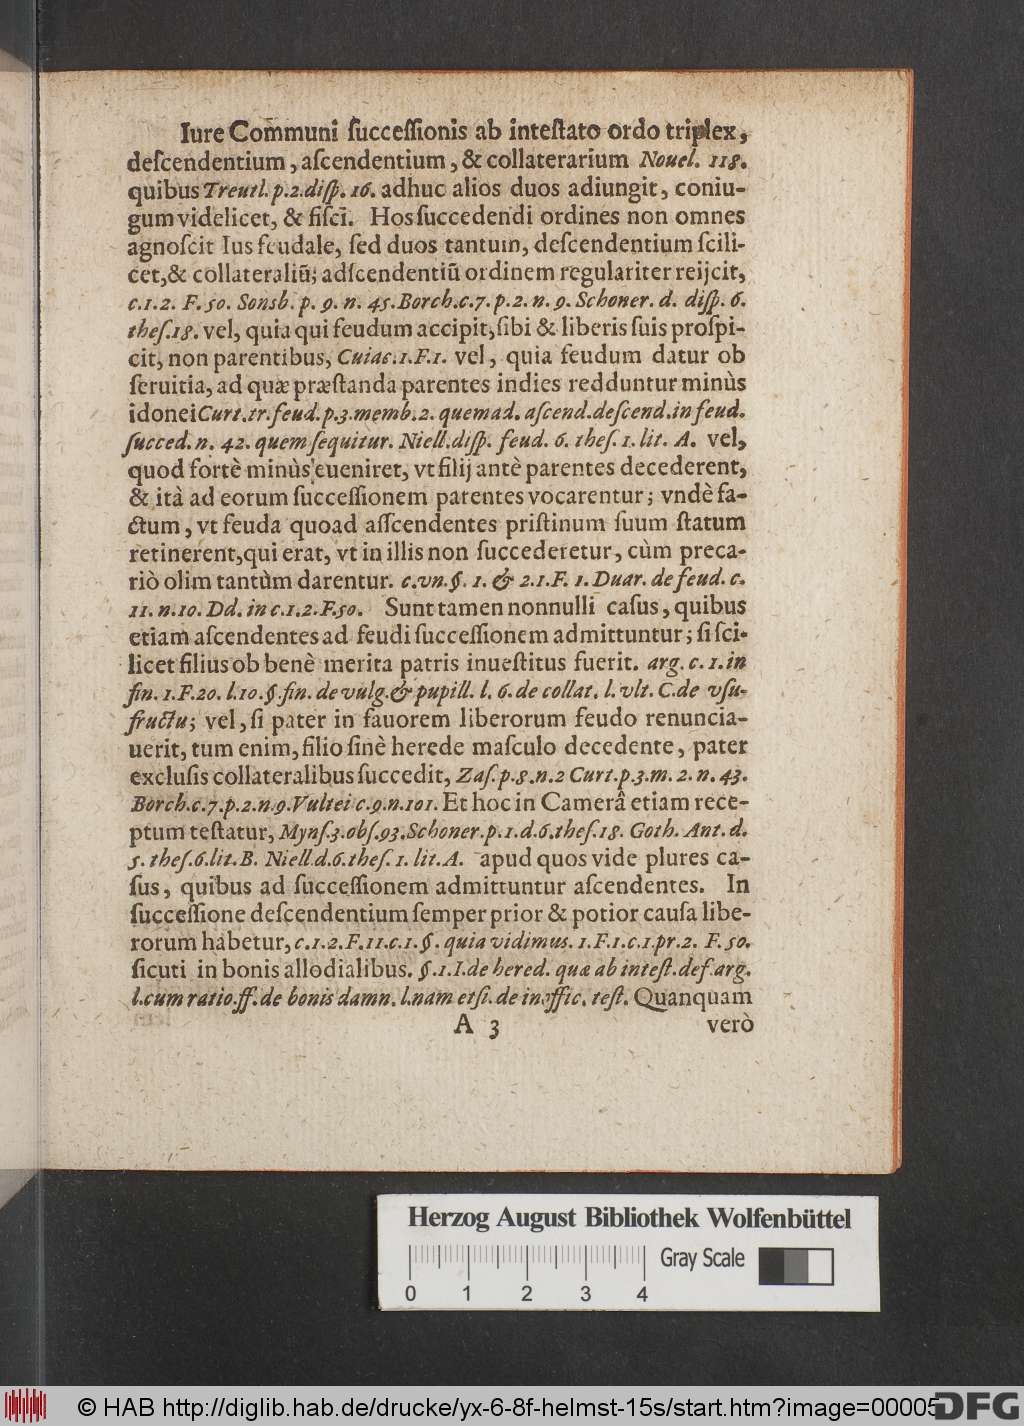 Iure Com̄muni ſucceſſionis ab inteſtato ordo triplex,
deſcendentium, aſcendentium, & collaterarium Nouel. 118.
quibus Treutl. p. 2. diſp. 16. adhuc alios duos adiungit, coniu-
gum videlicet, & fiſci. Hos ſuccedendi ordines non omnes
agnoſcit Ius feudale, ſed duos tantum, deſcendentium ſcili-
cet, & collateraliũ; adſcendentiũ ordinem regulariter reijcit,
c. 1. 2. F. 50. Sonsb. p. 9. n. 45. Borch. c. 7. p. 2. n. 9. Schoner. d. diſp. 6.
theſ. 18. vel, quia qui feudum accipit, ſibi & liberis ſuis proſpi-
cit, non parentibus, Cuiac. 1. F. 1. vel, quia feudum datur ob
ſeruitia, ad quæ præſtanda parentes indies redduntur minùs
idonei Curt. tr. feud. p. 3. memb. 2. quemad. aſcend. deſcend. in feud.
ſucced. n. 42. quem ſequitur. Niell. diſp. feud. 6. theſ. 1. lit. A. vel,
quod fortè minùs eueniret, vt filij antè parentes decederent,
& ità ad eorum ſucceſſionem parentes vocarentur; vndè fa-
ctum, vt feuda quoad aſſcendentes priſtinum ſuum ſtatum
retinerent, qui erat, vt in illis non ſuccederetur, cùm preca-
riò olim tantùm darentur. c. vn. §. 1. & 2. 1. F. 1. Duar. de feud. c.
11. n. 10. Dd. in c. 1. 2. F. 50. Sunt tamen nonnulli caſus, quibus
etiam aſcendentes ad feudi ſucceſſionem admittuntur; ſi ſci-
licet filius ob benè merita patris inueſtitus fuerit. arg. c. 1. in
fin. 1. F. 20. l. 10. §. fin. de vulg. & pupill. l. 6. de collat. l. vlt. C. de vſu-
fructu; vel, ſi pater in fauorem liberorum feudo renuncia-
uerit, tum enim, filio ſinè herede maſculo decedente, pater
excluſis collateralibus ſuccedit, Zaſ. p. 8. n. 2 Curt. p. 3. m. 2. n. 43.
Borch. c. 7. p. 2. n. 9. Vultei c. 9. n. 101. Et hoc in Camerâ etiam rece-
ptum teſtatur, Mynſ. 3. obſ. 93. Schoner. p. 1. d. 6. theſ. 18. Goth. Ant. d.
5. theſ. 6. lit. B. Niell. d. 6. theſ. 1. lit. A. apud quos vide plures ca-
ſus, quibus ad ſucceſſionem admittuntur aſcendentes. In
ſucceſſione deſcendentium ſemper prior & potior cauſa libe-
rorum habetur, c. 1. 2. F. 11. c. 1. §. quia vidimus. 1. F. 1. c. 1. pr. 2. F. 50.
ſicuti in bonis allodialibus. §. 1. I. de hered. quæ ab inteſt. def. arg.
l. cum ratio. ff. de bonis damn. l. nam etſi. de inoffic. teſt. Quanquam
A 3 verò
Herzog August Bibliothek Wolfenbüttel
Gray Scale
0 1 2 3 4
© HAB http://diglib.hab.de/drucke/yx-6-8f-helmst-15s/start.htm?image=00005
DFG